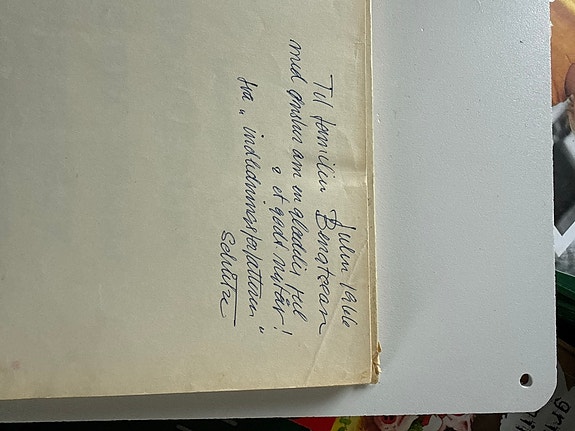 Julen 1966
Til familien Bengtsson
med ønsker om en glædelig jul
& et godt nytår!
fra "indledningsforfatteren"
Schultze